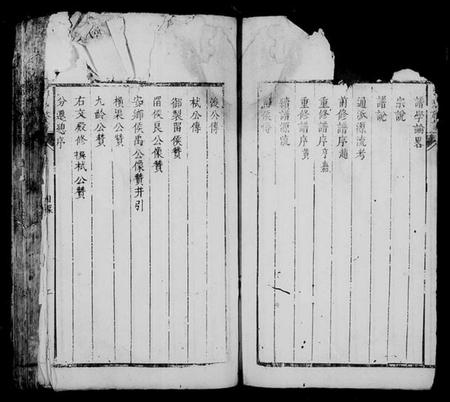 譜學論畧
宗説
譜説
通派源流考
前修譜序趙
重修譜序
重修譜序黄
續譜源流
侯傳
浚公傳
栻公傳
御製留侯賛
留侯良公像賛
安鄉侯禹公像賛并引
横渠公賛
九齡公賛
右文殿修撰栻公賛
分遷總序
目錄